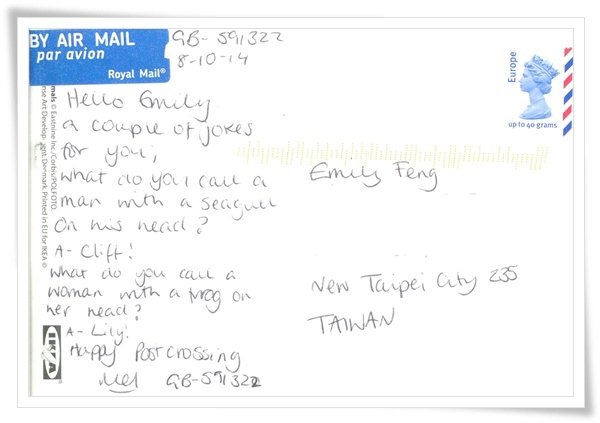 BY AIR MAIL
par avion
Royal Mail®
GB-591322
8-10-14
Europe
up to 40 grams
Hello Emily
a couple of jokes
for you;
what do you call a
man with a seagull
On his head?
A- Cliff!
what do you call a
woman with a frog on
her head?
A- Lily!
Happy Postcrossing
Mel GB-591322
Emily Feng
New Taipei City 235
TAIWAN
mals © Eastnine Inc./Corbis/POLFOTO.
nse Art Development, Denmark. Printed in EU for IKEA ©
IKEA